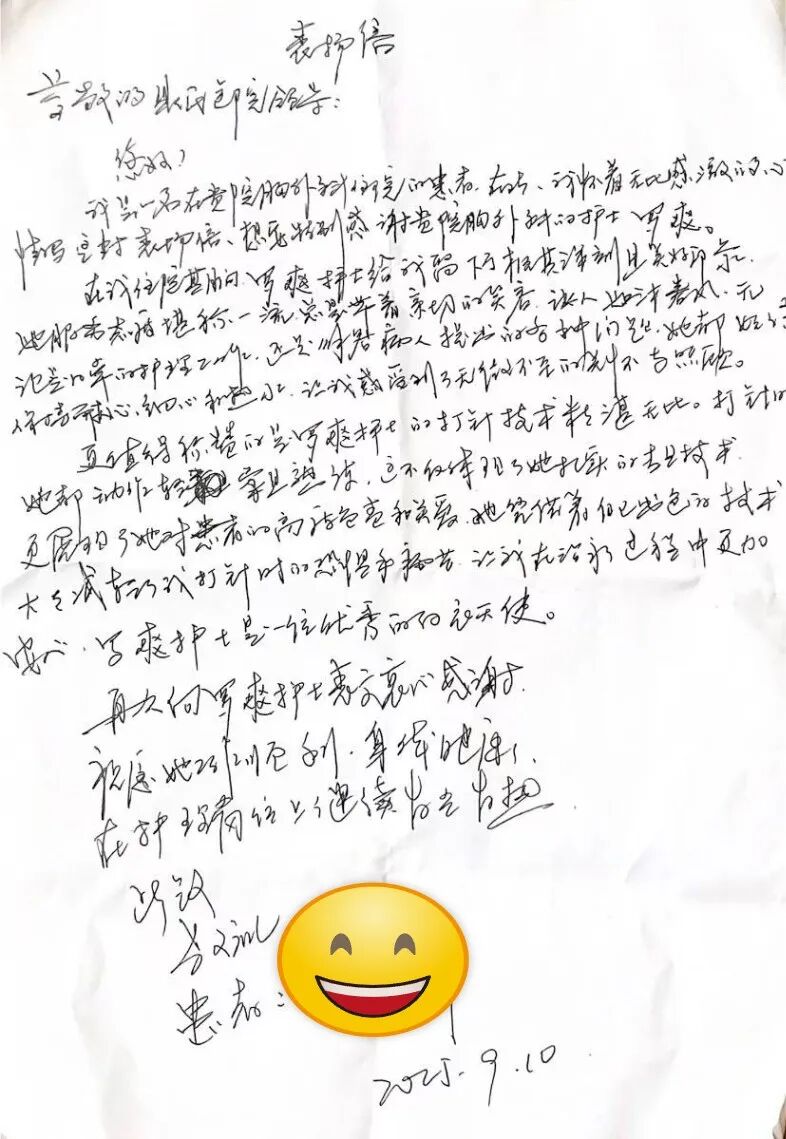 表扬信
尊敬的县人民医院领导：
您好！
我是一名在贵院胸外科住院的患者，在此，我怀着无比感激的心
情写这封表扬信，想要特别感谢贵院胸外科的护士罗爽。
在我住院期间，罗爽护士给我留下了极其深刻且美好印象。
她服务态度堪称一流，总是带着亲切的笑容，让人如沐春风，无
论是日常的护理工作，还是对各病人提出的各种问题，她都始终
保持耐心、细心和热心，让我感受到了无微不至的关怀与照顾。
更值得称赞的是罗爽护士的打针技术精湛无比。打针时
她都动作轻柔且熟练，这不仅体现了她扎实的专业技术
更展现了她对患者的高度负责和关爱，她凭借着自己出色的技术
大大减轻了我打针时的恐惧和痛苦，让我在治疗过程中更加
安心，罗爽护士是一位优秀的白衣天使。
再次向罗爽护士表示衷心感谢，
祝愿她工作顺利，身体健康，
在护理岗位上继续发光发热
此致
敬礼
患者：
2025.9.10